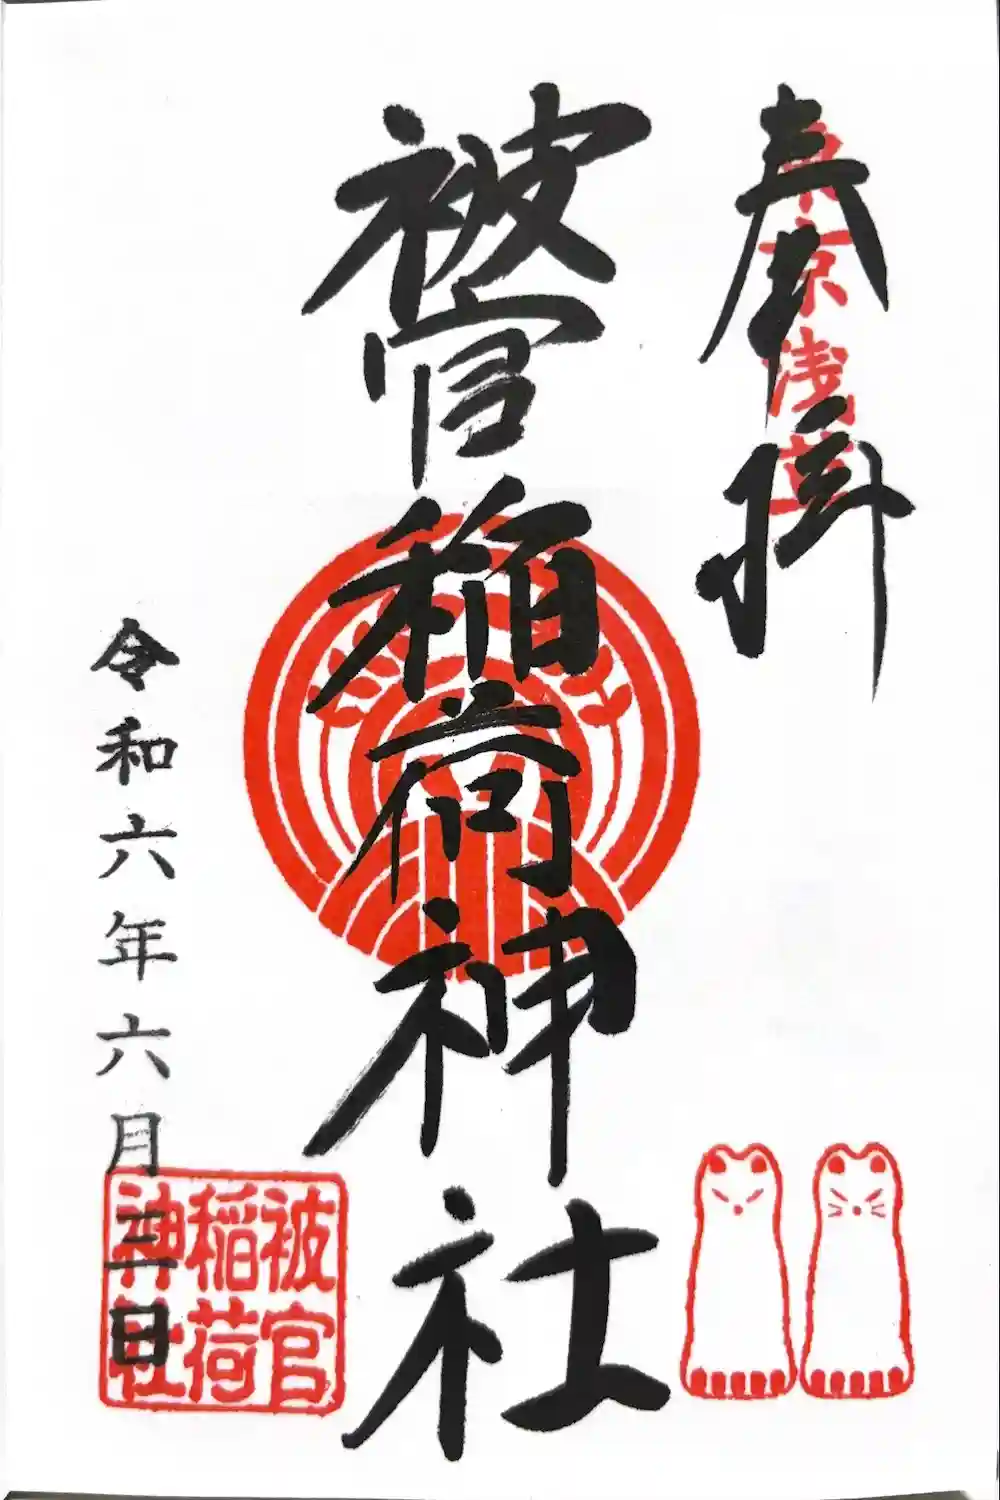 奉拝
東京浅草
被官稲荷神社
令和六年六月三日
被官
稲荷
神社